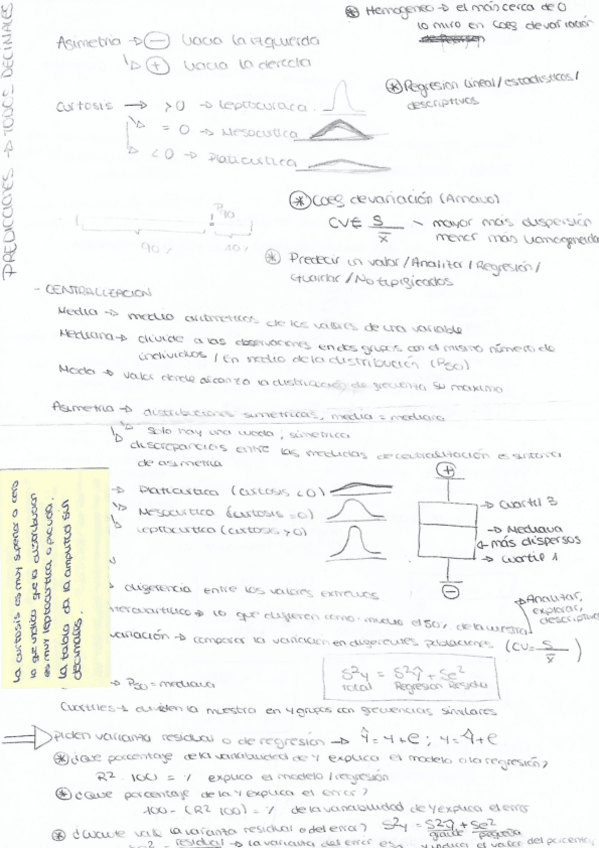 PREDICCIONES → TODOS DECIMALES
* Homogeneo → el más cerca de 0
lo miro en Coef de variación
Asimetria → (-) hacia la izquierda
↳ (+) hacia la derecha
* Regresion lineal/estadisticos/
descriptivos
Curtosis → >0 → leptocurtica
↳ = 0 → Mesocurtica
↳ <0 → Platicurtica
* Coef de variación (Amavo)
CV = S / x̄ - mayor más dispersión
menor más homogeneidad
P90
90% 10%
* Predecir un valor / Analizar / Regresión /
Guardar / No tipificados
- CENTRALIZACION
Media → media aritmetica de los valores de una variable
Mediana → divide a las observaciones en dos grupos con el mismo número de
individuos / En medio de la distribución (P50)
Moda → valor donde alcanza la distribución de frecuencia su maximo
Asimetria → distribuciones simetricas, media = mediana
↳ si solo hay una moda, simetrica
↳ discrepancias entre las medidas de centralización es sintoma
de asimetria
→ Platicurtica (curtosis <0)
Mesocurtica (curtosis =0)
leptocurtica (curtosis >0)
(+)
→ Cuartil 3
→ Mediana
← más dispersos
→ Cuartil 1
(-)
la curtosis es muy superior a cero
lo que indica que la distribucion
es muy leptocurtica o picuda.
la tabla da la amplitud sin
decimales.
diferencia entre los valores extremos
intercuartilico → lo que difieren como mucho el 50% de la muestra
→ Analizar,
explorar,
descriptivos
variación → comparar la variacion en diferentes poblaciones (CV = S / x̄)
→ P50 = mediana
S²y = S²ŷ + Se²
total Regresion Residuo
Cuartiles → dividen la muestra en 4 grupos con frecuencias similares
⇒ piden varianza residual o de regresión → ŷ = y + e ; y = ŷ + e
* ¿Que porcentaje de la variabilidad de Y explica el modelo o la regresión?
R² · 100 = % explica el modelo / regresión
* ¿Que porcentaje de la Y explica el error?
100 - (R² · 100) = % de la variabilidad de Y explica el error
* ¿Cuanto vale la varianza residual o del error? S²y = S²ŷ + Se²
grande pequeña
residual → La varianza del error es